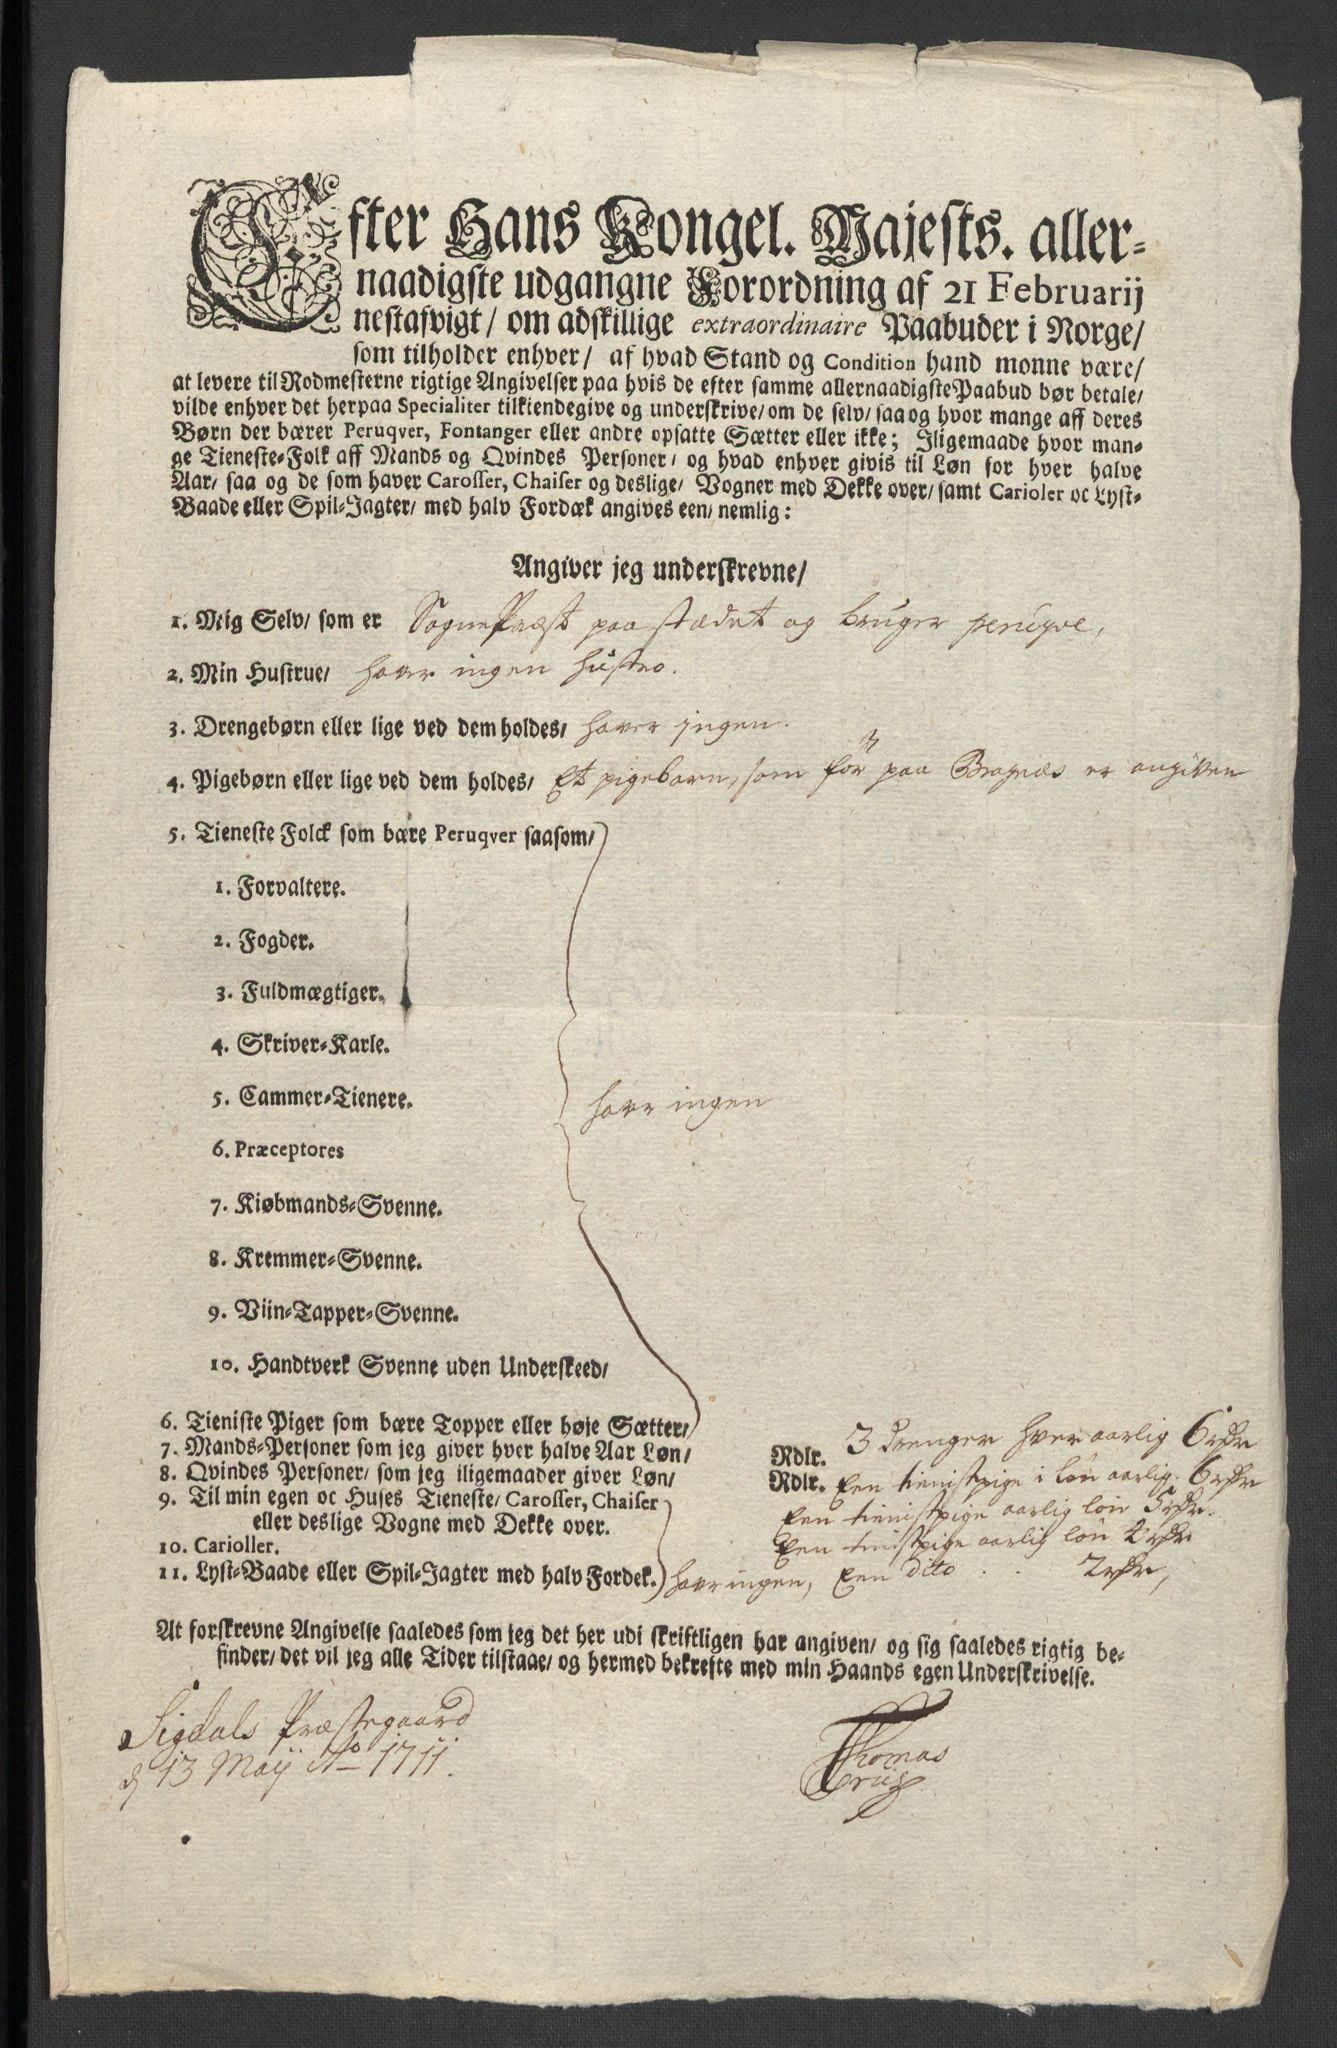 Efter Hans Kongel. Majests. aller-
naadigste udgangne Forordning af 21 Februarij
nestafvigt/ om adskillige extraordinaire Paabuder i Norge/
som tilholder enhver/ af hvad Stand og Condition hand monne være/
at levere til Rodmesterne rigtige Angivelser paa hvis de efter samme allernaadigste Paabud bør betale/
vilde enhver det herpaa Specialiter tilkiendegive og underskrive/ om de selv/ saa og hvor mange aff deres
Børn der bærer Peruqver, Fontanger eller andre opsatte Sætter eller ikke; Iligemaade hvor man-
ge Tieneste-Folk aff Mands og Qvindes Personer/ og hvad enhver givis til Løn for hver halve
Aar/ saa og de som haver Carosser, Chaiser og deslige/ Vogner med Dekke over/ samt Carioler oc Lyst-
Baade eller Spil-Jagter/ med halv Fordæk angives een/ nemlig:
Angiver jeg underskrevne/
1. Mig Selv/ som er SognePræst paa stædet og bruger peruqve,
2. Min Hustrue/ haver ingen hustro.
3. Drengebørn eller lige ved dem holdes/ haver jngen.
4. Pigebørn eller lige ved dem holdes/ Et pigebarn, som før paa Bragnæs er angiven
5. Tieneste Folck som bære Peruqver saasom/
1. Forvaltere.
2. Fogder.
3. Fuldmægtiger.
4. Skriver-Karle.
5. Cammer-Tienere.
haver ingen
6. Præceptores
7. Kiøbmands-Svenne.
8. Kremmer-Svenne.
9. Viin-Tapper-Svenne.
10. Handtverk Svenne uden Underskeed/
6. Tieniste Piger som bære Topper eller høje Sætter/
7. Mands-Personer som jeg giver hver halve Aar Løn/ Rdlr. 3 drenger hver aarlig 6 rdr
8. Qvindes Personer/ som jeg iligemaader giver Løn/ Rdlr. Een tienistpige i løn aarlig. 6 rdr
9. Til min egen oc Huses Tieneste/ Carosser, Chaiser Een tienistpige aarlig løn 5 rdr.
eller deslige Vogne med Dekke over.
10. Carioller. Een tinistpige aarlig løn 2 rdr
11. Lyst-Baade eller Spil-Jagter med halv Fordek. haver ingen, Een dito . . 2 rdr,
At forskrevne Angivelse saaledes som jeg det her udi skriftligen har angiven/ og sig saaledes rigtig be-
finder/ det vil jeg alle Tider tilstaae/ og hermed bekrefte med min Haands egen Underskrivelse.
Sigdals Præstegaard
d 13 Maij Ao 1711.
Thomas